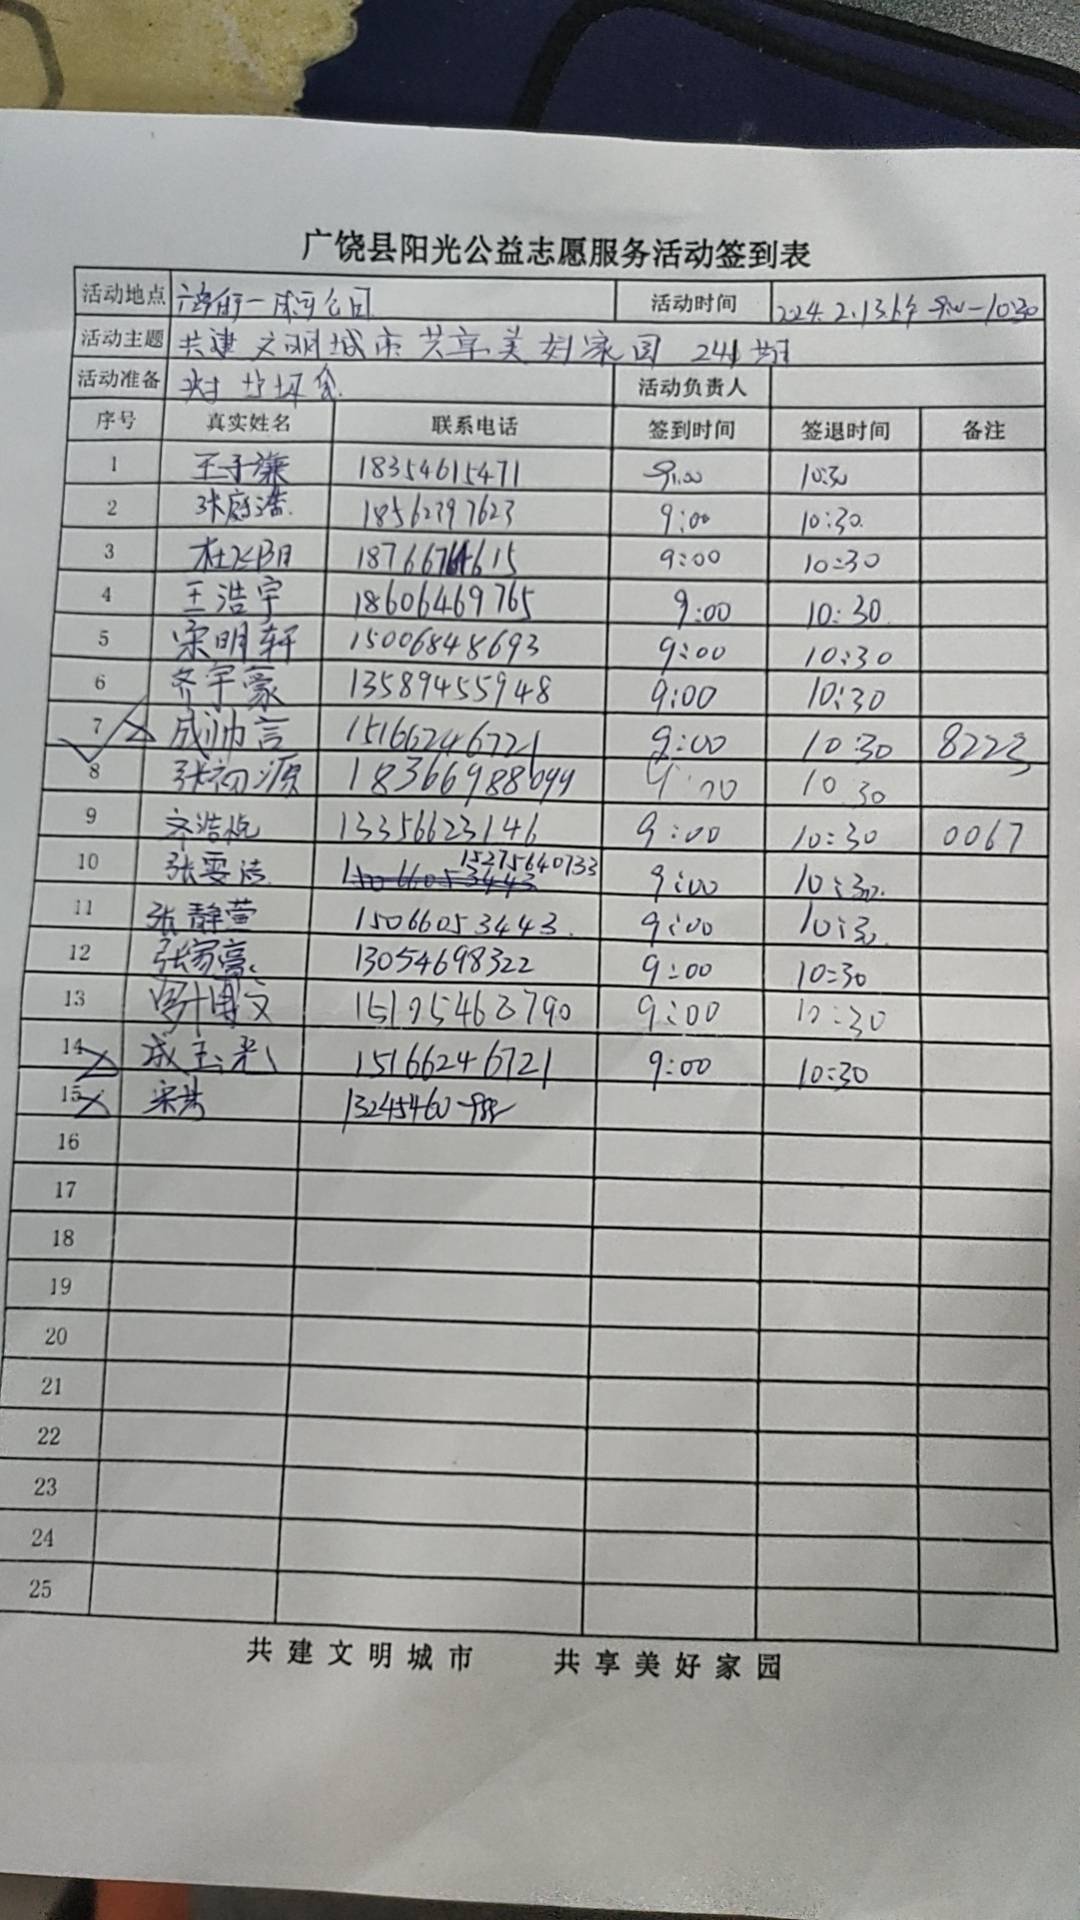 广饶县阳光公益志愿服务活动签到表
活动地点 活动时间 10:30
活动主题 共建文明城市共享美好家园 241班
活动准备 活动负责人
序号 真实姓名 联系电话 签到时间 签退时间 备注
1 王子濂 18354615471 9:00 10:30
2 张庭浩 18562797623 9:00 10:30
3 杜 阳 9:00 10:30
4 王浩宇 18606469765 9:00 10:30
5 宋明轩 15006848693 9:00 10:30
6 齐宇豪 13589455948 9:00 10:30
7 成帅言 15166246721 9:00 10:30 8223
8 张初源 18366988099 9:00 10 30
9 齐浩悦 13356623146 9:00 10:30 0067
10 张雯洁 15275640733 9:00 10:30
11 张静萱 15066053443 9:00 10:30
12 张家豪 13054698322 9:00 10:30
13 博文 9:00 10:30
14 成玉光 15166246721 9:00 10:30
15 宋
16
17
18
19
20
21
22
23
24
25
共建文明城市 共享美好家园